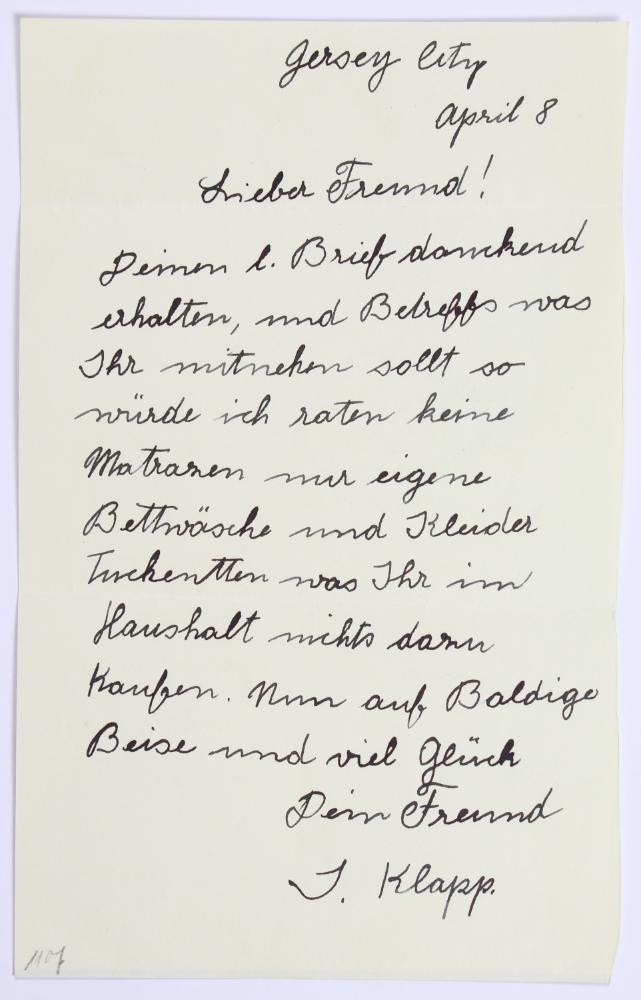 Jersey City
April 8
Lieber Freund!
Deinen l. Brief danckend
erhalten, und Betreffs was
Ihr mitnehen sollt so
würde ich raten keine
Matrazen nur eigene
Bettwäsche und Kleider
was Ihr im
Haushalt nichts dazu
Kaufen. Nun auf Baldige
Reise und viel Glück
Dein Freund
J. Klapp.